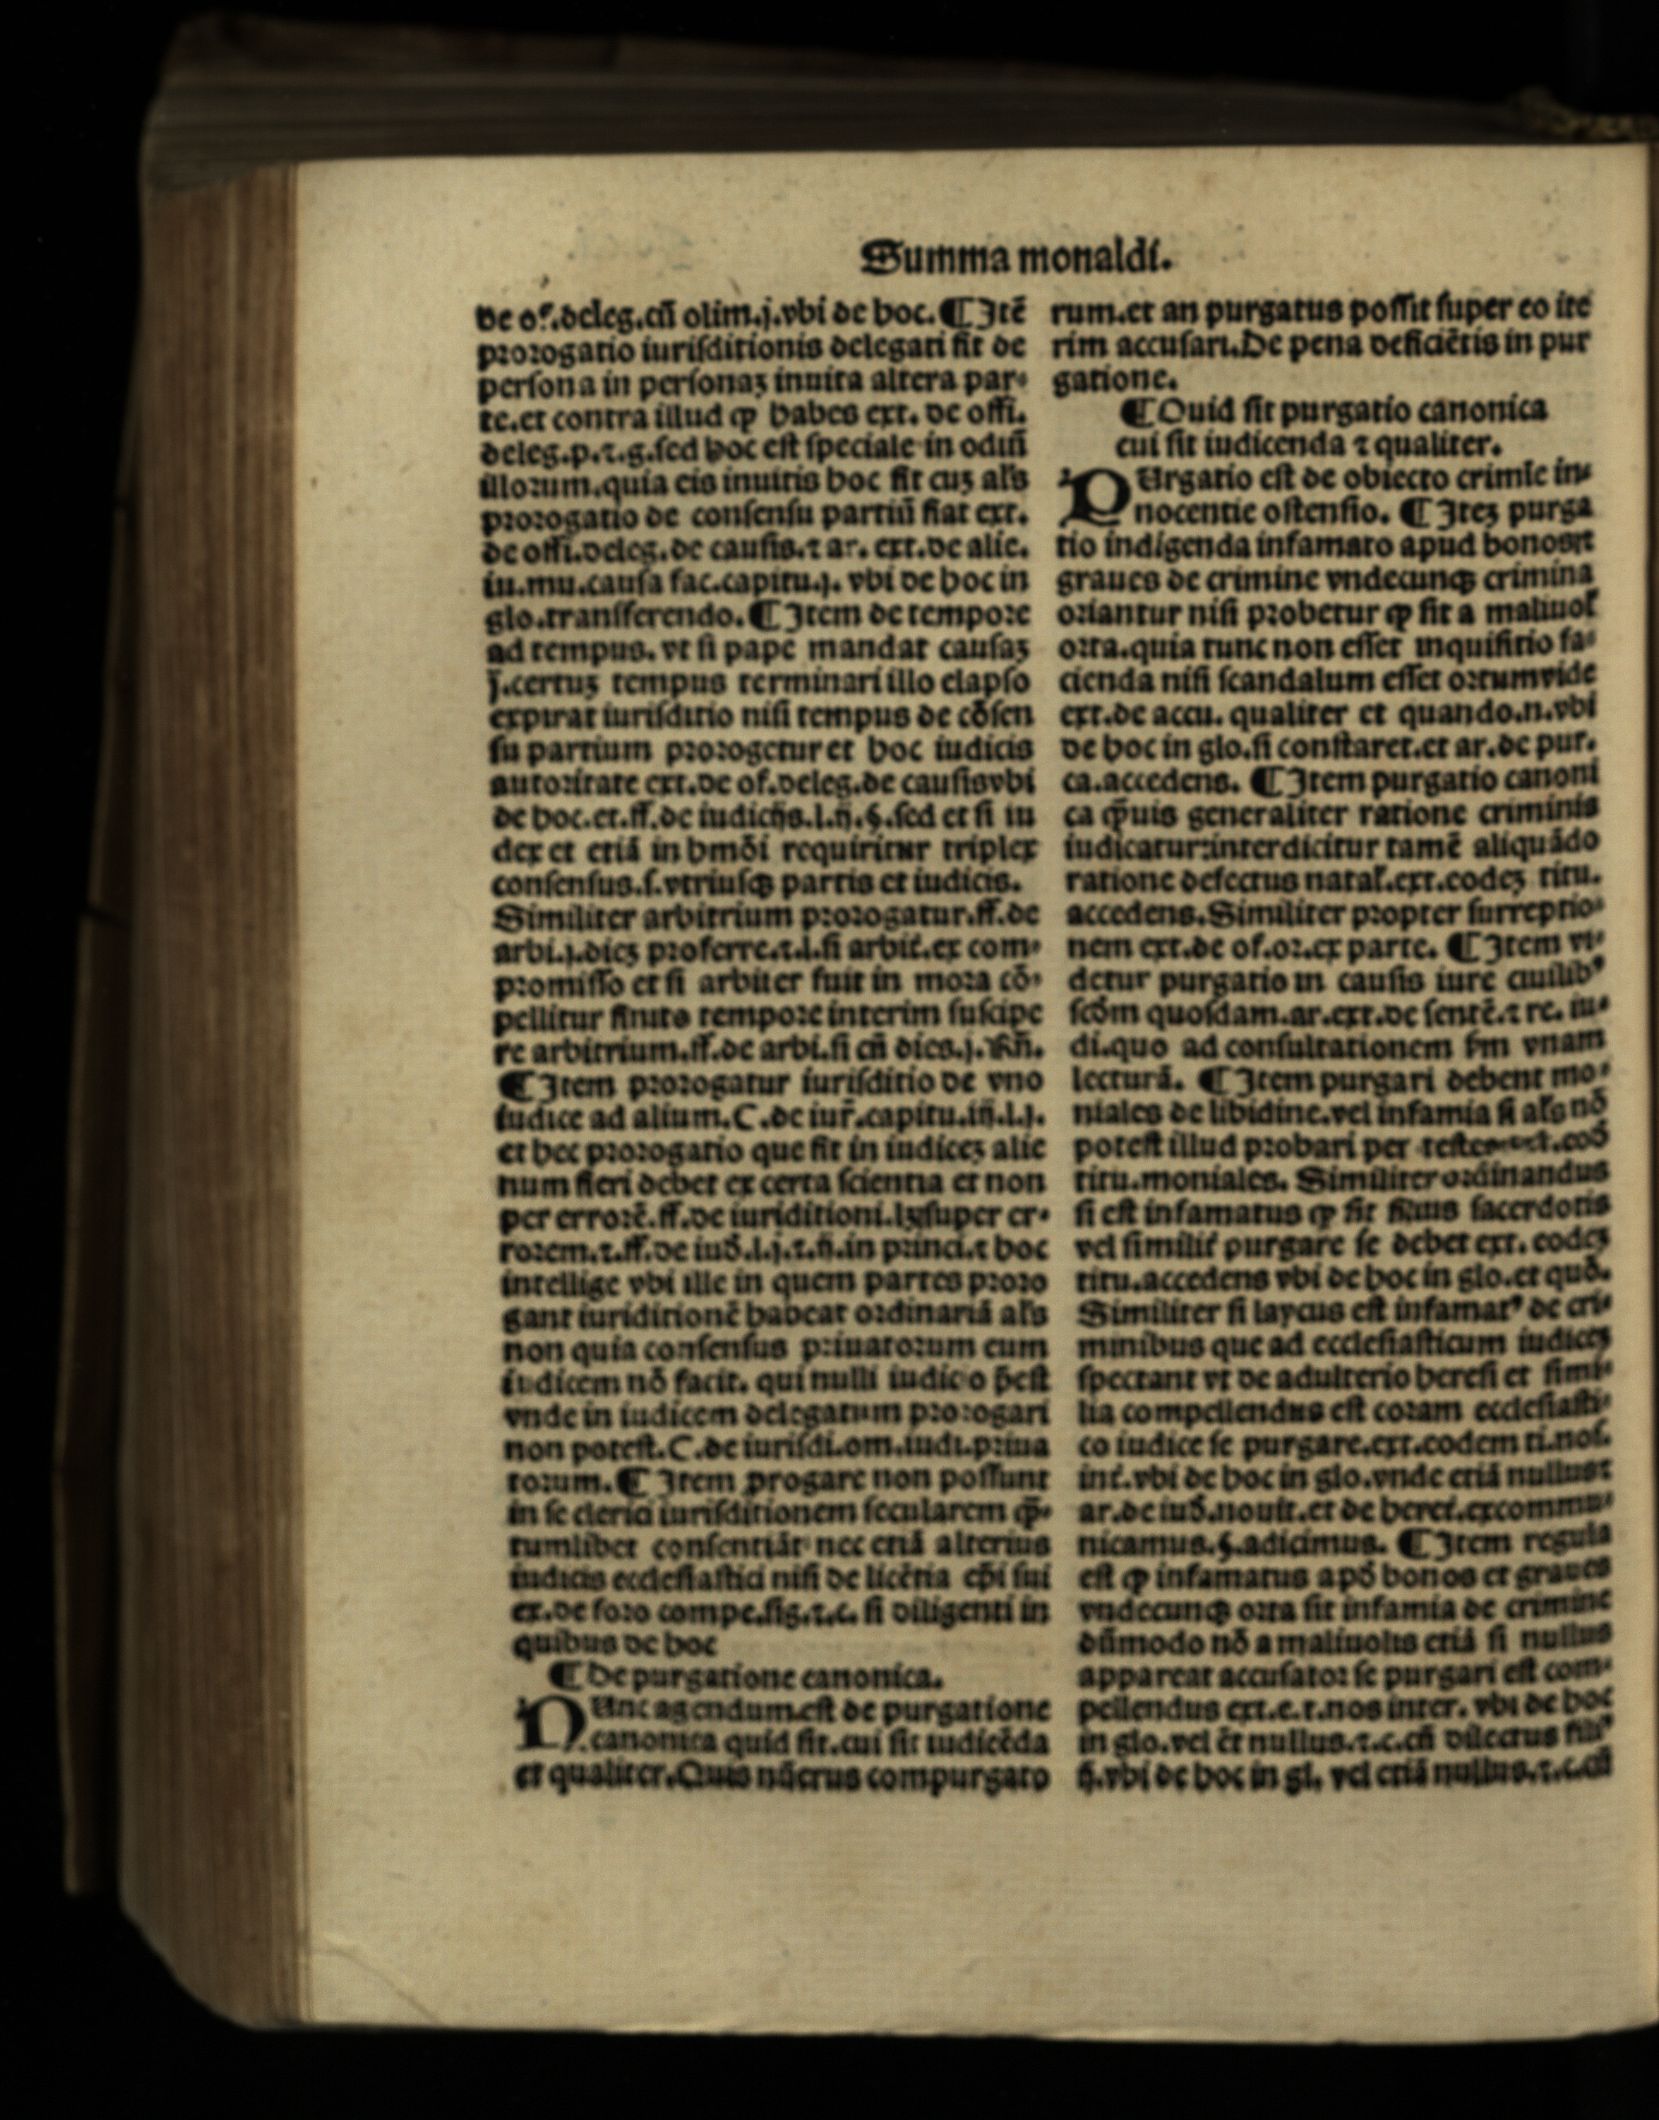 Summa monaldi.
de of.deleg.cū olim.j.vbi de hoc. ¶ Itē
prorogatio iurisditionis delegati fit de
persona in personaʒ inuita altera par-
te.et contra illud ꝙ habes ext. de offi.
deleg.p.⁊.g.sed hoc est speciale in odiū
illorum.quia eis inuitis hoc fit cuʒ al's
prorogatio de consensu partiū fiat ext.
de offi.deleg.de causis.⁊ ar. ext.de alie.
iu.mu.causa fac.capitu.j. vbi de hoc in
glo.transferendo. ¶ Item de tempore
ad tempus. vt si pape mandat causaʒ
j̄.certuʒ tempus terminari illo elapso
expirat iurisditio nisi tempus de cōsen
su partium prorogetur et hoc iudicis
autoritate ext.de of.deleg.de causis vbi
de hoc.et.ff.de iudicijs.l.ij.§.sed et si iu
dex et etiā in hmōi requiritur triplex
consensus.s.vtriusqꝫ partis et iudicis.
Similiter arbitrium prorogatur.ff.de
arbi.j.dieʒ proferre.⁊.l.si arbit̄.ex com-
promisso et si arbiter fuit in mora cō-
pellitur finito tempore interim suscipe
re arbitrium.ff.de arbi.si cū dies.j.Rn̄.
¶ Item prorogatur iurisditio de vno
iudice ad alium.C.de iur̄.capitu.iij.l.j.
et hec prorogatio que fit in iudiceʒ alie
num fieri debet ex certa scientia et non
per errorē.ff.de iuriditioni.lʒ super er-
rorem.⁊.ff.de iud̄.l.j.⁊.ij.in princi.⁊ hoc
intellige vbi ille in quem partes proro
gant iuriditionē habeat ordinariā al's
non quia consensus priuatorum eum
iudicem nō facit. qui nulli iudicio p̄est
vnde in iudicem delegatum prorogari
non potest.C.de iurisdi.om.iudi.priua
torum. ¶ Item progare non possunt
in se clerici iurisditionem secularem qz̄-
tumlibet consentiāt nec etiā alterius
iudicis ecclesiastici nisi de licētia ep̄i sui
ex.de foro compe.sig.⁊.c. si diligenti in
quibus de hoc
¶ De purgatione canonica.
NUnc agendum est de purgatione
canonica quid sit.cui sit iudicēda
et qualiter.Quis nūerus compurgato
rum.et an purgatus possit super eo ite
rim accusari.De pena deficiētis in pur
gatione.
¶ Quid sit purgatio canonica
cui sit iudicenda ⁊ qualiter.
PUrgatio est de obiecto crimīe in-
nocentie ostensio. ¶ Iteʒ purga
tio indigenda infamato apud bonos ⁊
graues de crimine vndecunqꝫ crimina
oriantur nisi probetur ꝙ sit a maliuol'
orta.quia tunc non esset inquisitio fa-
cienda nisi scandalum esset ortum vide
ext.de accu. qualiter et quando.n.vbi
de hoc in glo.si constaret.et ar.de pur.
ca.accedens. ¶ Item purgatio canoni
ca qz̄uis generaliter ratione criminis
iudicatur:interdicitur tamē aliquādo
ratione defectus natal'.ext.eodeʒ titu.
accedens.Similiter propter surreptio-
nem ext.de of.or.ex parte. ¶ Item vi-
detur purgatio in causis iure ciuilibꝰ
scd̄m quosdam.ar.ext.de sentē.⁊ re. iu-
di.quo ad consultationem s̄m vnam
lecturā. ¶ Item purgari debent mo-
niales de libidine.vel infamia si al's nō
potest illud probari per testes ext.eod̄
titu.moniales. Similiter ordinandus
si est infamatus ꝙ sit filius sacerdotis
vel similit̄ purgare se debet ext. eodeʒ
titu.accedens vbi de hoc in glo.et quō.
Similiter si laycus est infamatꝰ de cri-
minibus que ad ecclesiasticum iudiceʒ
spectant vt de adulterio heresi et simi-
lia compellendus est coram ecclesiasti-
co iudice se purgare.ext.eodem ti.nos.
int̄.vbi de hoc in glo.vnde etiā nullus ⁊
ar.de iud̄.nouit.et de heret̄.excommu-
nicamus.§.adicimus. ¶ Item regula
est ꝙ infamatus apd̄ bonos et graues
vndecunqꝫ orta sit infamia de crimine
dūmodo nō a maliuolis etiā si nullus
appareat accusator se purgari est com-
pellendus ext.e.t.nos inter. vbi de hoc
in glo.vel ēt nullus.⁊.c.cū dilectus filiꝰ
ij.vbi de hoc in gl. vel etiā nullus.⁊.c.cū